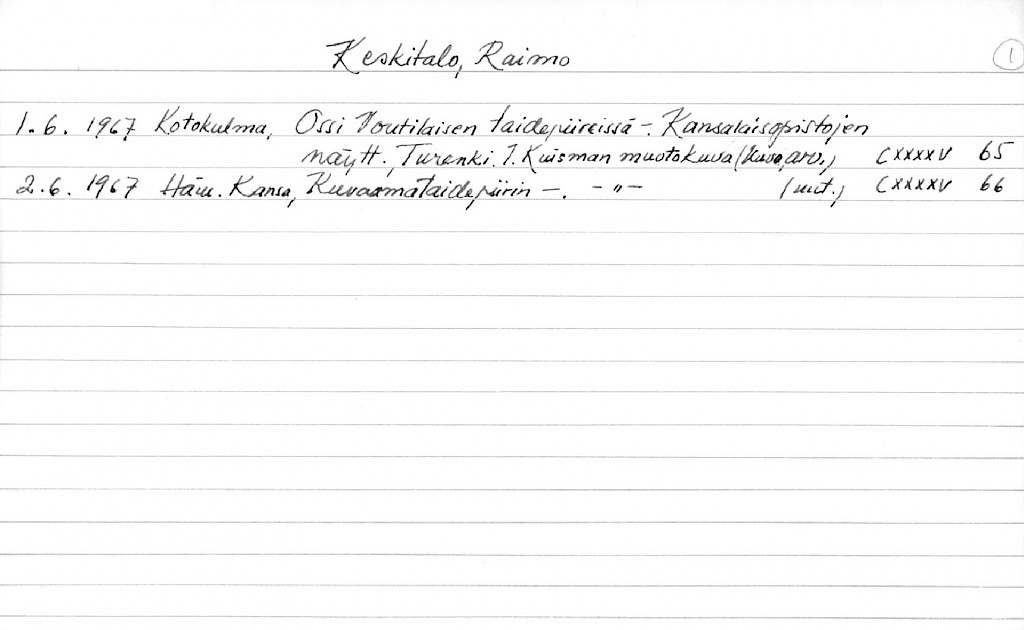 Keskitalo, Raimo 1
1.6. 1967 Kotokulma, Ossi Voutilaisen taidepiireissä -. Kansalaisopistojen
näytt., Turenki. J. Kuisman muotokuva (kuva, arv.) CXXXXV 65
2.6. 1967 Häm. Kansa, Kuvaamataidepiirin -. - " - (uut.) CXXXXV 66